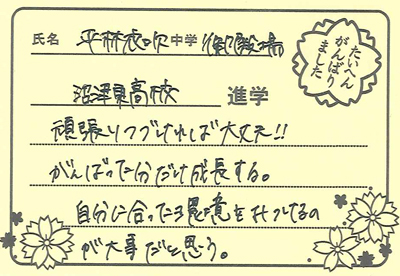 氏名 平林 中学
たいへん
がんばり
ました
沼津東高校 進学
頑張りつづければ大丈夫!!
がんばった分だけ成長する。
自分に合った環境を見つけるの
が大事だと思う。